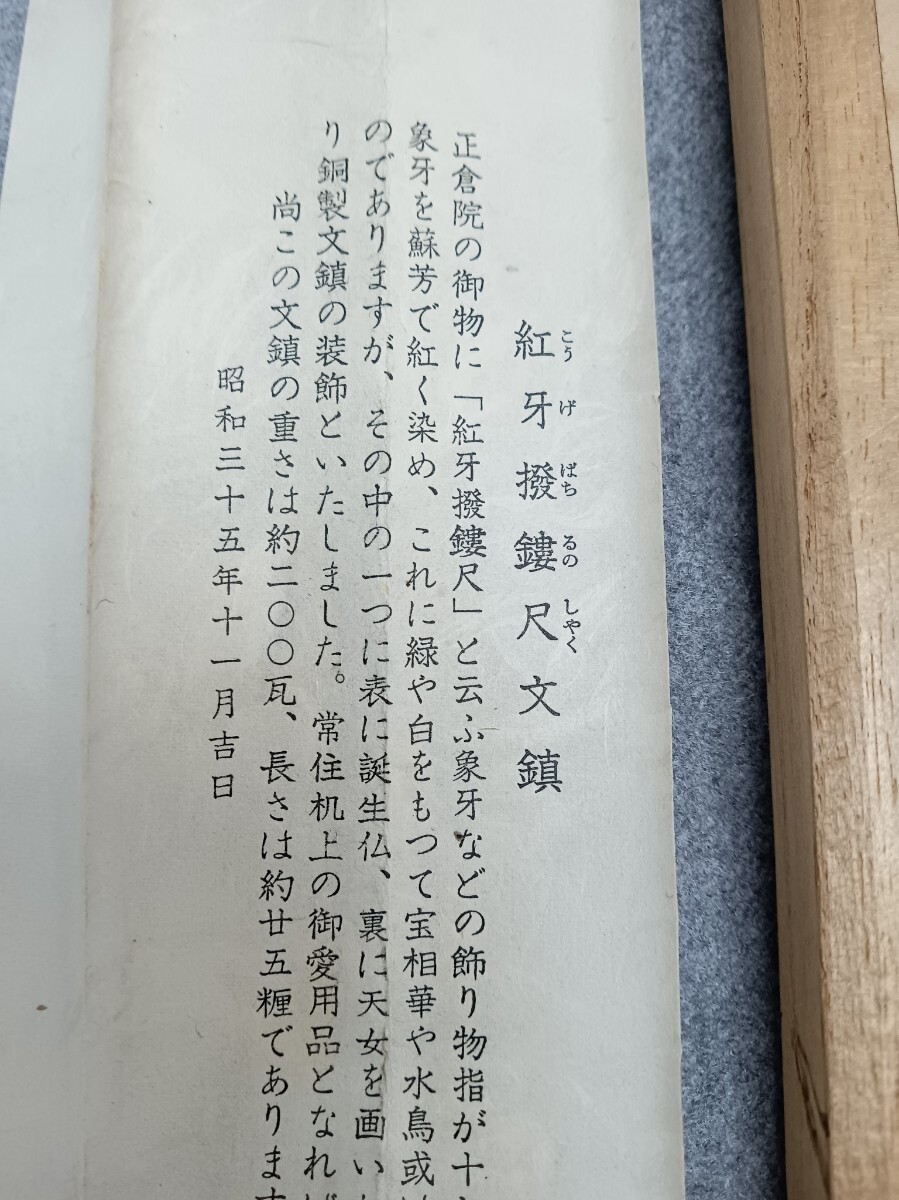 紅牙撥鏤尺文鎮
こうげばちるのしやく
正倉院の御物に「紅牙撥鏤尺」と云ふ象牙などの飾り物指が十
象牙を蘇芳で紅く染め、これに緑や白をもつて宝相華や水鳥或
のでありますが、その中の一つに表に誕生仏、裏に天女を画い
り銅製文鎮の装飾といたしました。常住机上の御愛用品となれ
尚この文鎮の重さは約二〇〇瓦、長さは約廿五糎であります
昭和三十五年十一月吉日